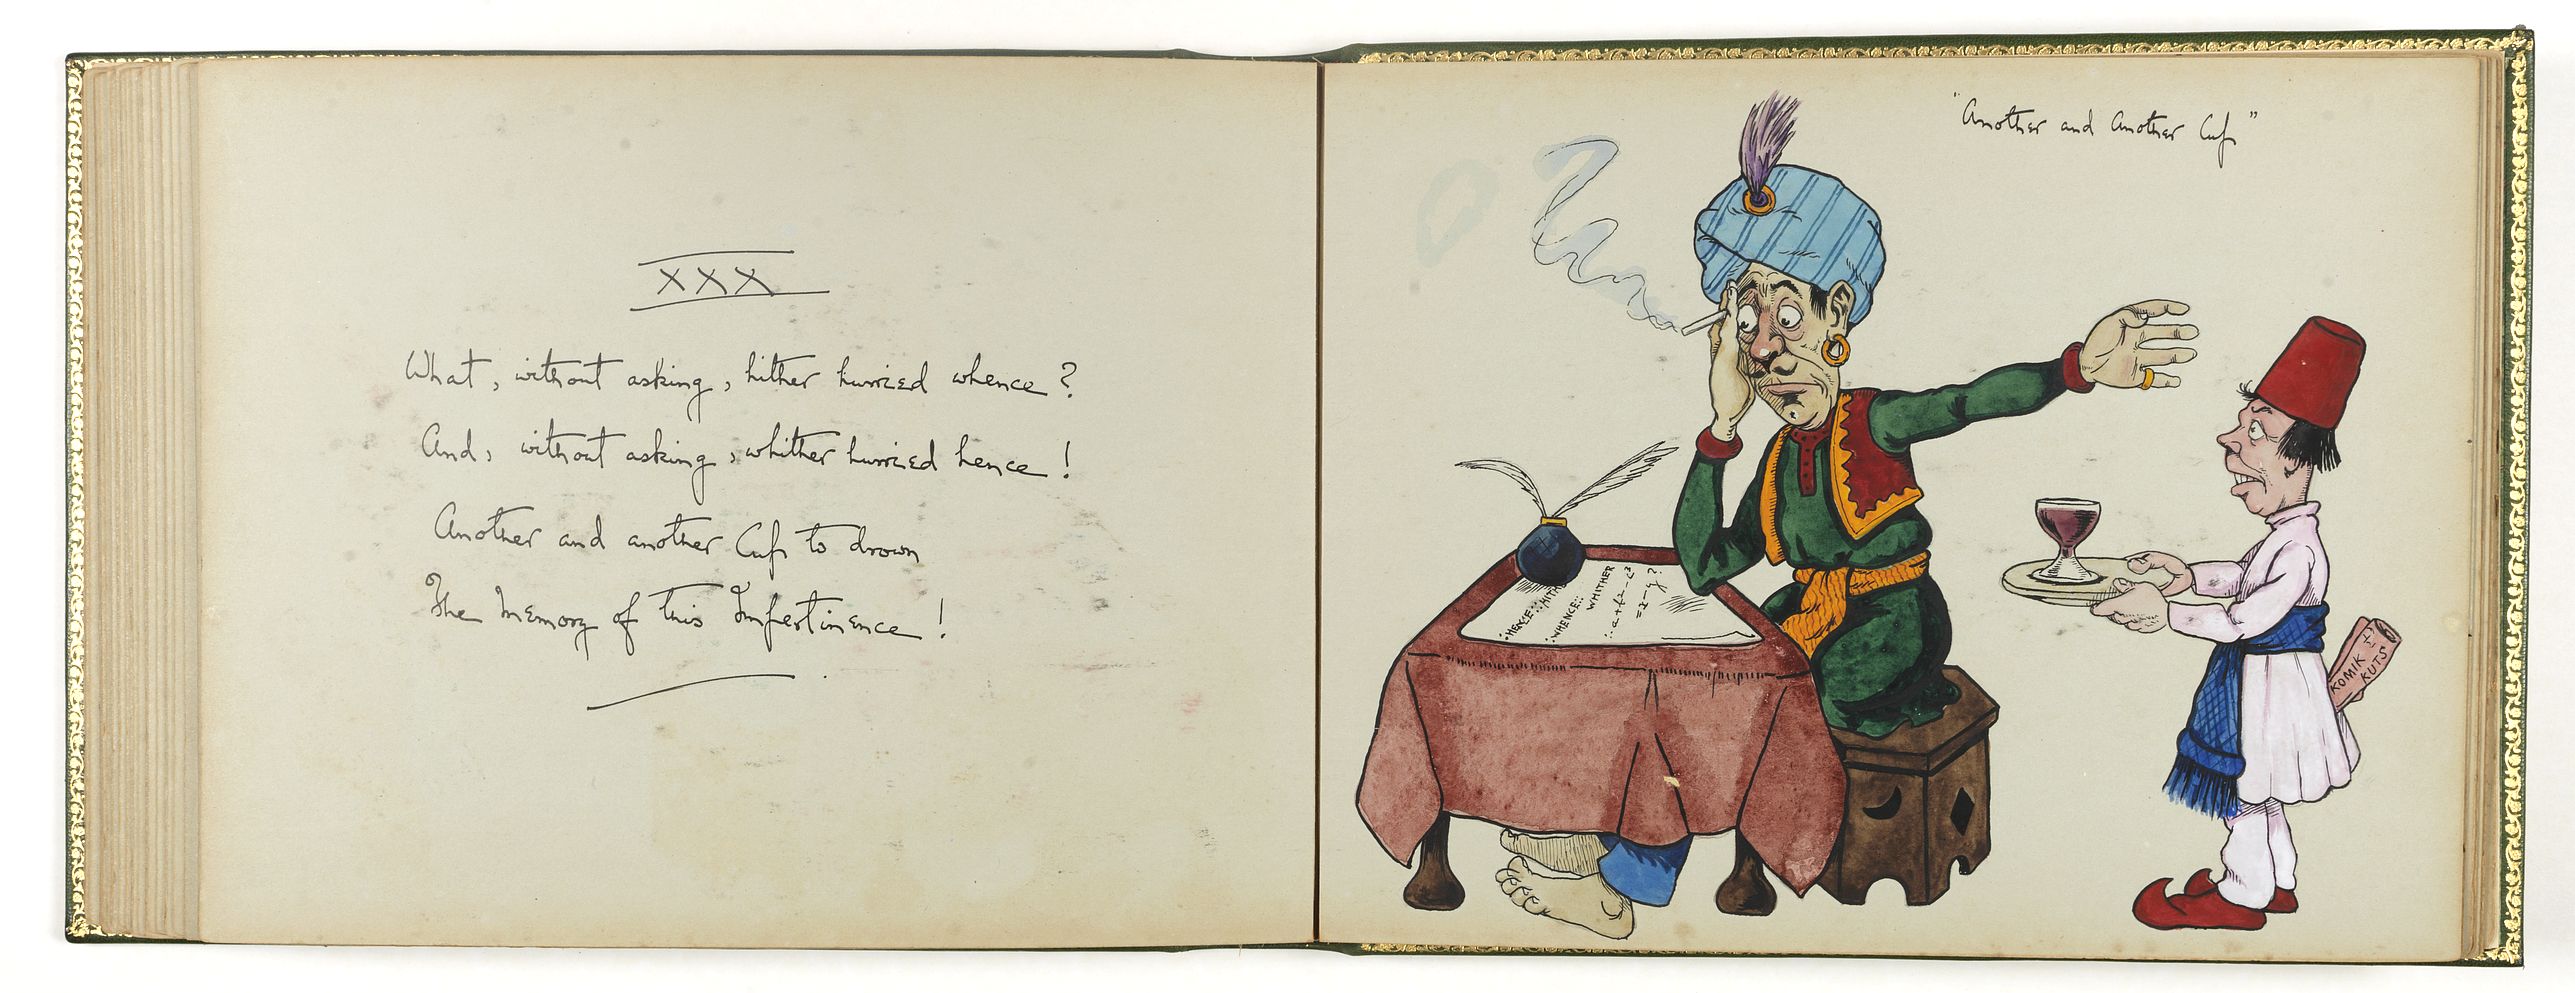 XXX
What, without asking, hither hurried whence?
And, without asking, whither hurried hence!
Another and another Cup to drown
The Memory of this Impertinence!
"Another and Another Cup"
∴ HENCE ∷ HITH
∴ WHENCE ∷
WHITHER
KOMIK
KUTS